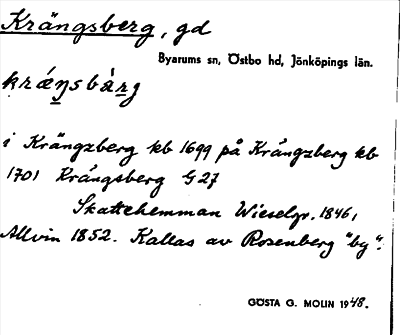 Krängsberg, gd
Byarums sn, Östbo hd, Jönköpings län.
i Krängzberg kb 1699 på Krångzberg kb
1701 Krångsberg G27
Skattehemman Wieselgr. 1846,
Allvin 1852. Kallas av Rosenberg "by".
GÖSTA G. MOLIN 1948.